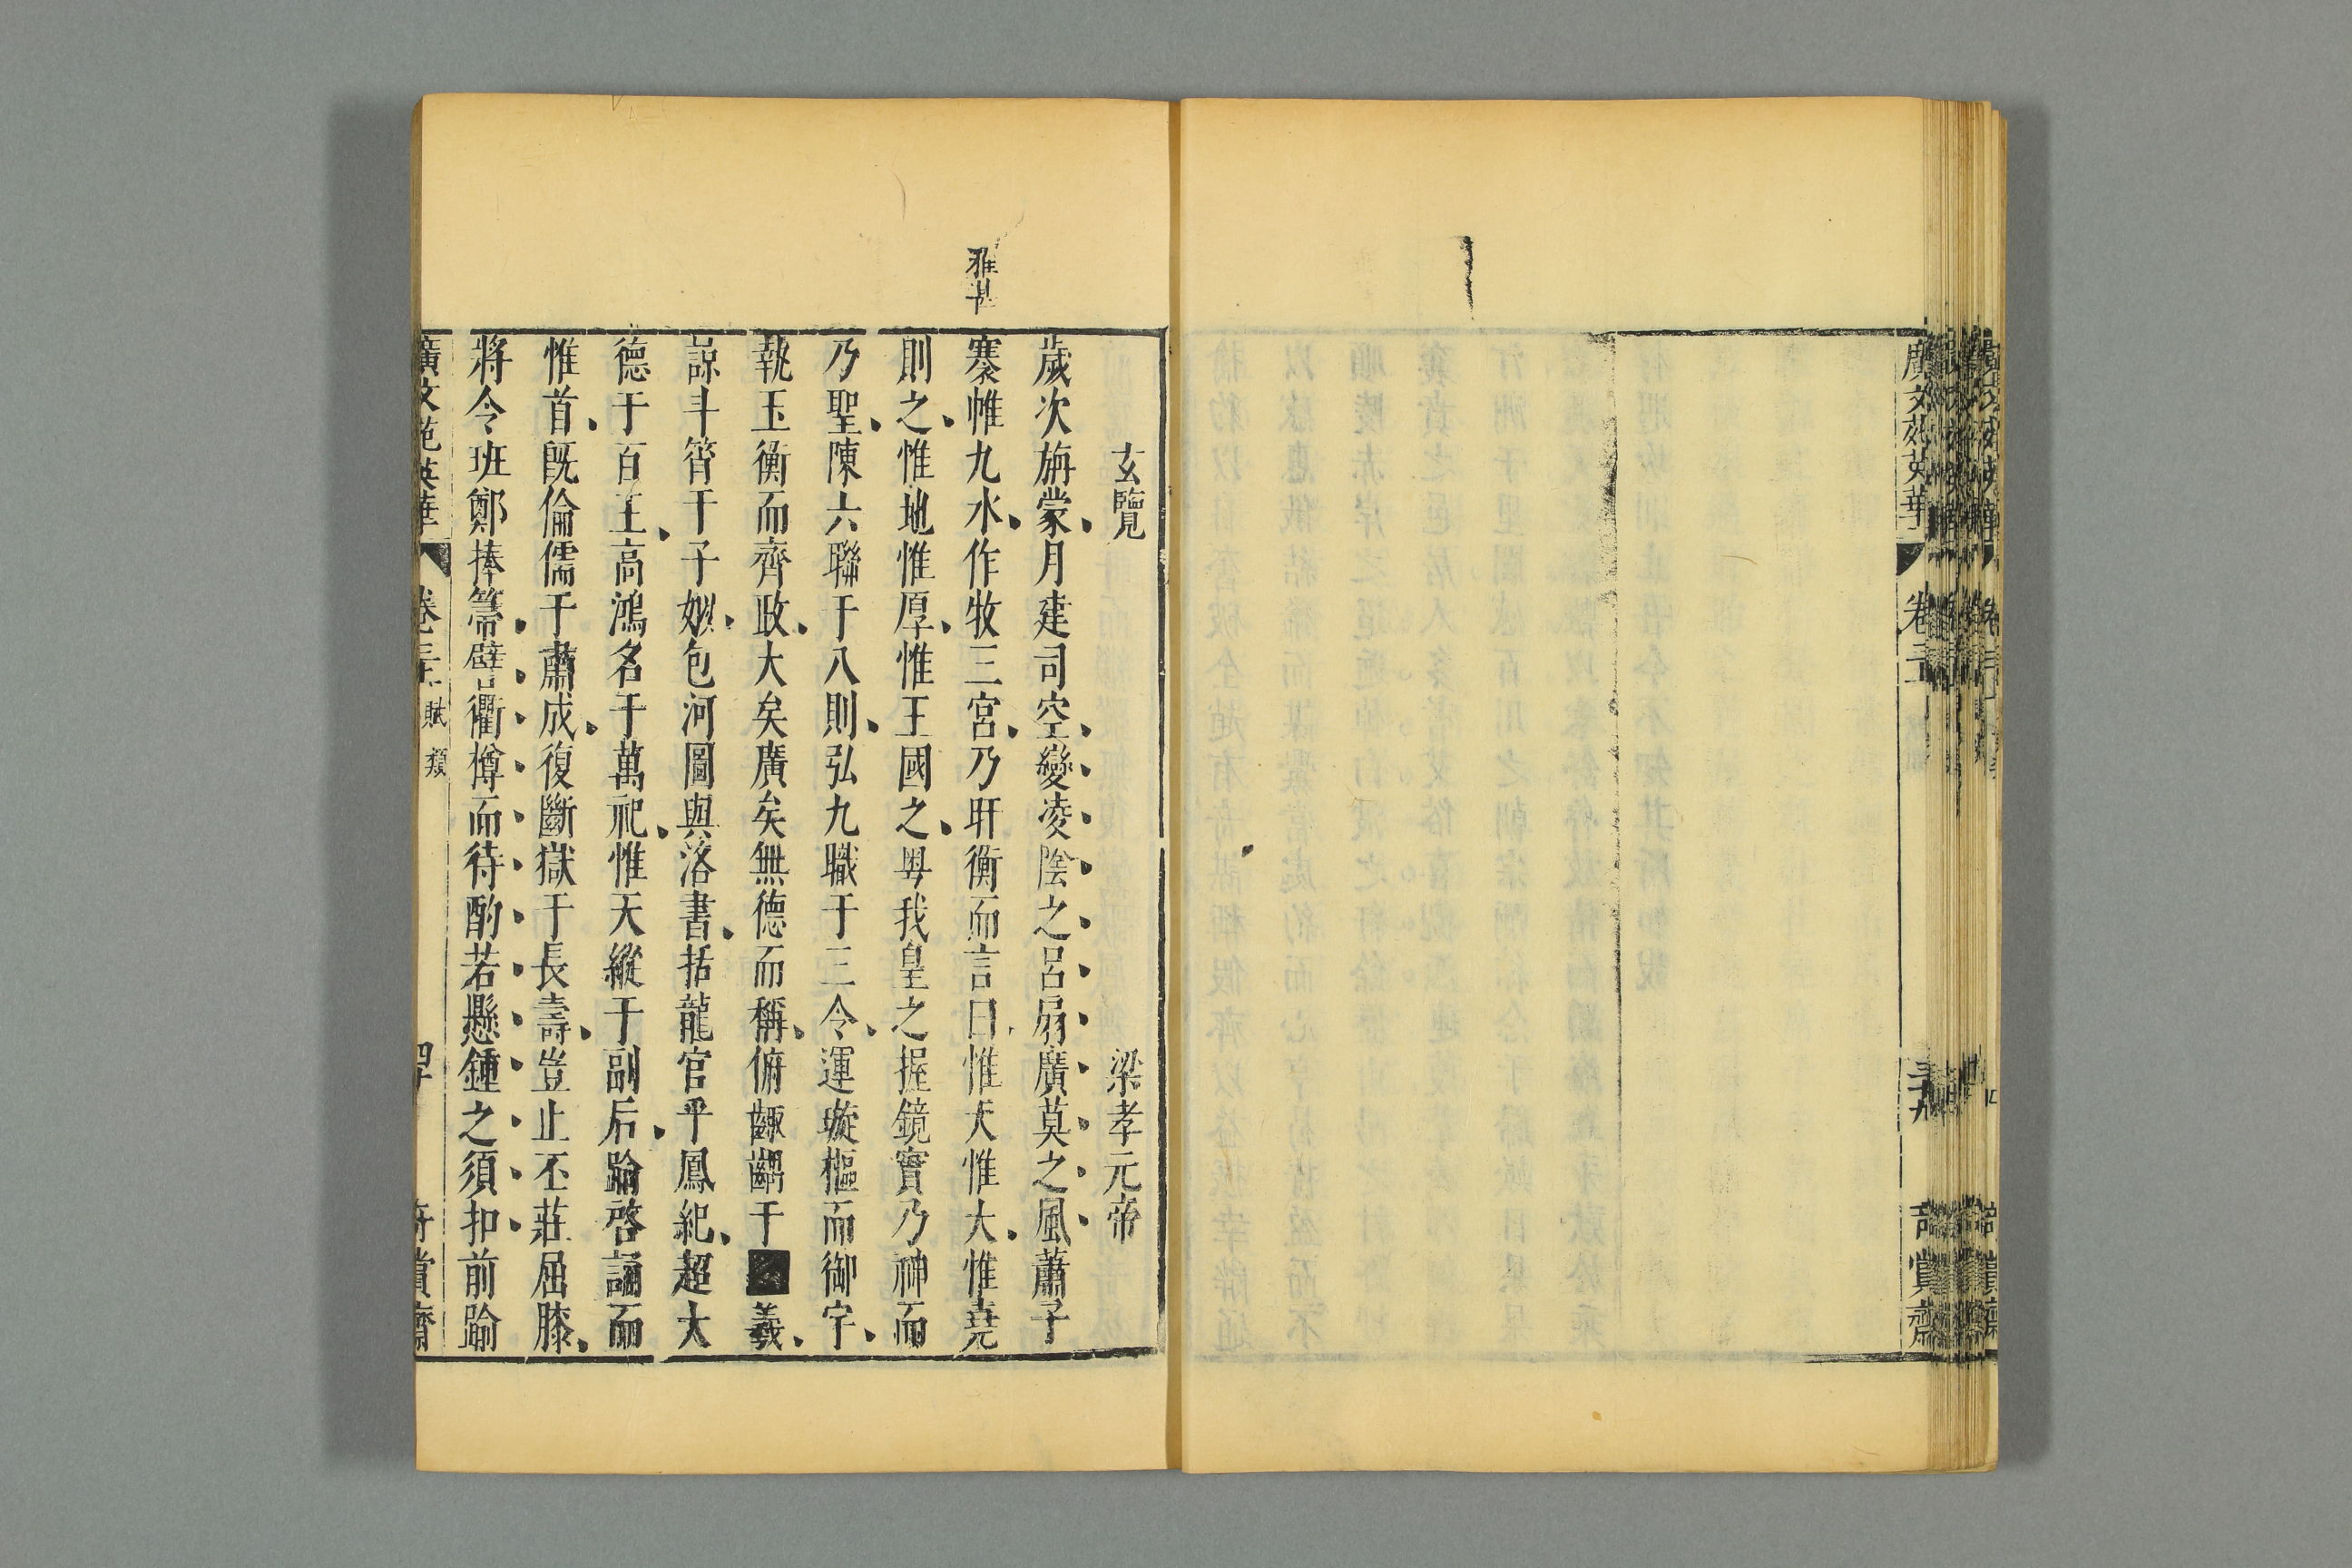 廣文苑英華
卷二十
三十九
賞齋
玄覽
梁孝元帝
雅甚
歲次旃蒙月建司空變凌陰之呂扇廣莫之風蕭子
褰帷九水作牧三宮乃盱衡而言曰惟天惟大惟堯
則之惟地惟厚惟王國之粵我皇之握鏡實乃神而
乃聖陳六聯于八則弘九職于三令運璇樞而御宇
執玉衡而齊政大矣廣矣無德而稱俯齷齪于羲
諒斗筲于子姒包河圖與洛書括龍官乎鳳紀超大
德于百王高鴻名于萬祀惟天縱于副后踰啓誦而
惟首旣倫儒于肅成復斷獄于長壽豈止丕莊屈膝
將令班鄭捧箒譬衢樽而待酌若懸鍾之須扣前踰
廣文苑英華
賦類
四十
賞齋